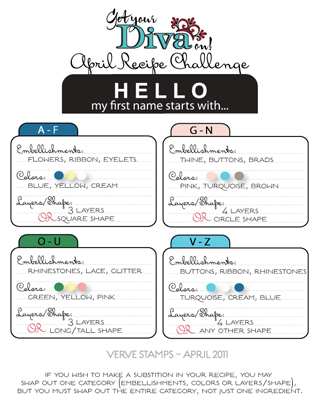 Got your
Diva
on!
April Recipe Challenge
HELLO
my first name starts with...
A - F
Embellishments:
FLOWERS, RIBBON, EYELETS
Colors:
BLUE, YELLOW, CREAM
Layers/Shape:
3 LAYERS
OR SQUARE SHAPE
G - N
Embellishments:
TWINE, BUTTONS, BRADS
Colors:
PINK, TURQUOISE, BROWN
Layers/Shape:
4 LAYERS
OR CIRCLE SHAPE
O - U
Embellishments:
RHINESTONES, LACE, GLITTER
Colors:
GREEN, YELLOW, PINK
Layers/Shape:
3 LAYERS
OR LONG/TALL SHAPE
V - Z
Embellishments:
BUTTONS, RIBBON, RHINESTONES
Colors:
TURQUOISE, CREAM, BLUE
Layers/Shape:
4 LAYERS
OR ANY OTHER SHAPE
VERVE STAMPS - APRIL 2011
IF YOU WISH TO MAKE A SUBSTITION IN YOUR RECIPE, YOU MAY
SWAP OUT ONE CATEGORY (EMBELLISHMENTS, COLORS OR LAYERS/SHAPE),
BUT YOU MUST SWAP OUT THE ENTIRE CATEGORY, NOT JUST ONE INGREDIENT.